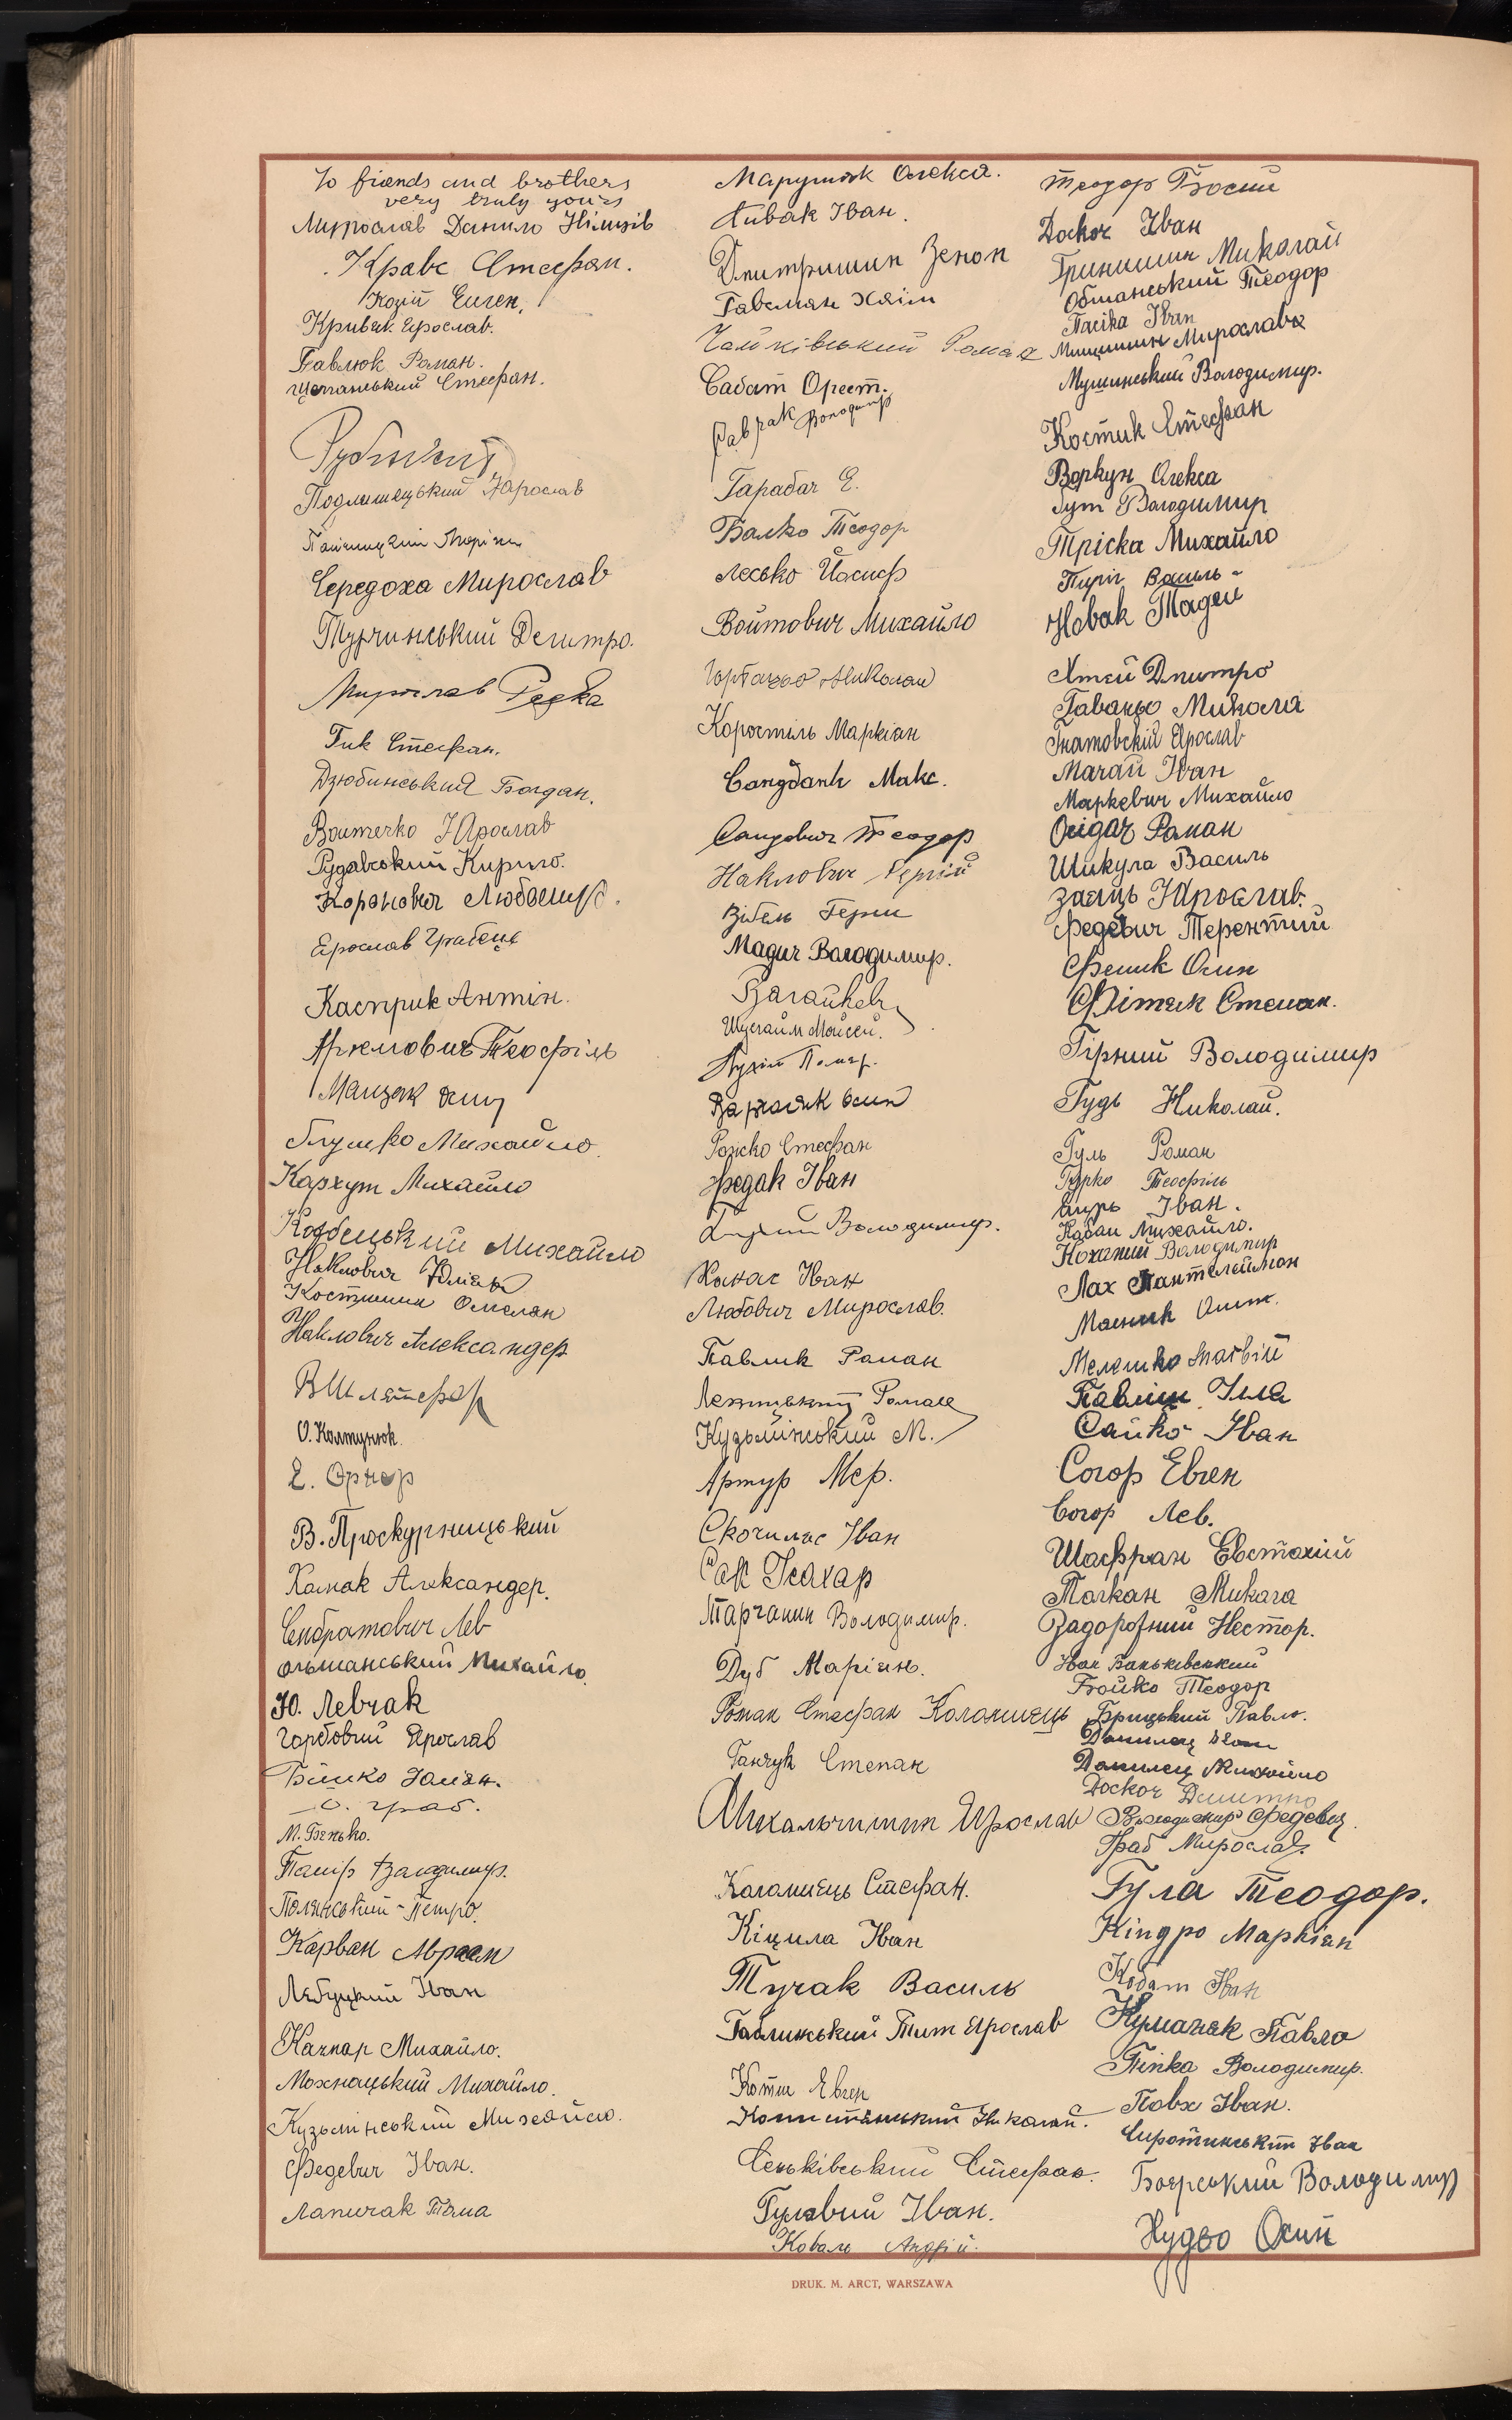 To friends and brothers
very truly yours
Мирослав Данило Німців
Кравс Стефан.
Козій Евген.
Кривяк Ярослав.
Павлюк Роман.
Щепанський Стефан.
Подлашецький Ярослав
Середоха Мирослав
Турчинський Дмитро.
Мирослав Редка
Гик Стефан.
Дзюбинський Богдан.
Войтечко Ярослав
Рудавський Кирило.
Коранович Любомир.
Ярослав Грабець
Касприк Антін.
Теофіль
Мацяк
Глушко Михайло.
Кархут Михайло
Михайло
Наклович Юліян
Костишин Омелян
Наклович Александер
В Шляйфер
О. Колтунюк.
Е. Орнер
В. Проскурницький
Хамак Александер.
Сембратович Лев
Ольшанський Михайло.
Ю. Левчак
Горбовий Ярослав
Бійко Юліян.
О. Граб.
М. Бенько.
Паїф Володимир.
Полянський Петро.
Карван Абрагам
Лебуцкий Іван
Качкар Михайло.
Мохнацький Михайло.
Кузьмінський Михайло.
Федевич Іван.
Лапичак Тома
Марущак Олекса.
Іван.
Дмитришин Зенон
Гавсман Хаїм
Чайківський Роман
Сабат Орест.
Гаврак Володимир
Гарабач Е.
Балко Теодор
Лесько Йосиф
Войтович Михайло
Николай
Коростіль Маркіян
Сандбанк Макс.
Сандович Теодор
Наклович Сергій
Зібель Герш
Мадич Володимир.
Вагайкевич
Мойсей.
Осип
Рожко Стефан
Федак Іван
Володимир.
Канас Іван
Любович Мирослав.
Павлик Роман
Роман
Кузьмінський М.
Артур Мер.
Скочиляс Іван
Сак Ісахар
Тарчанин Володимир.
Дуб Маріян.
Роман Стефан Коломиєць
Ганчук Степан
Михальчишин Ярослав
Коломиєць Стефан.
Кіцила Іван
Тучак Василь
Гавлинський Тит Ярослав
Котис Евген
Копистянський Николай.
Сеньківський Стефан.
Гулявий Іван.
Коваль Андрій.
Теодор
Доскоч Іван
Гринишин Миколай
Обшанський Теодор
Пасіка Іван
Мицишин Мирослава
Мушинський Володимир.
Костик Стефан
Воркун Олекса
Гут Володимир
Тріска Михайло
Пиріг Василь
Новак Тадей
Хтей Дмитро
Гаваньо Микола
Гнатовскій Ярослав
Мачай Іван
Маркевич Михайло
Роман
Шикула Василь
Заяць Ярослав.
Федевич Терентий
Феник Осип
Фітяк Степан.
Гірний Володимир
Гудь Николай.
Гуль Роман
Гурко Теофіль
Іван.
Кабан Михайло.
Коханий Володимир
Лах Пантелеймон
Масник Осип.
Мелешко Матвій
Павліш Ілля
Сайко Іван
Согор Евген
Согор Лев.
Шафран Евстахій
Толкан Микола
Задорожний Нестор.
Іван Баньківський
Бойко Теодор
Брицький Павло.
Данилец Іван
Данилец Михайло
Доскоч Дмитро
Володимир Федевич.
Граб Мирослав.
Гула Теодор.
Кіндро Маркіян
Кобат Іван
Кумачек Павло
Піпка Володимир.
Повх Іван.
Сиротинський Іван
Боярський Володимир
Нудьо Осип
DRUK. M. ARCT, WARSZAWA